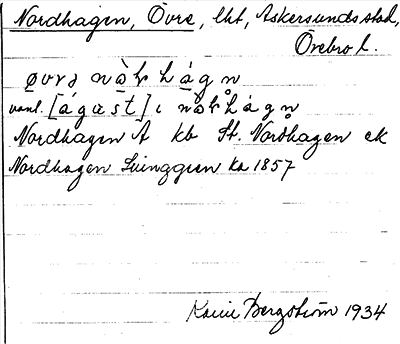 Nordhagen, Övre, lht, Askersunds stad,
Örebro l.
øvrə nòɽhágn
vanl. [águst] i nòɽhágn
Nordhagen Å kb St. Nordhagen ek
Nordhagen ka 1857
Karin Bergström 1934